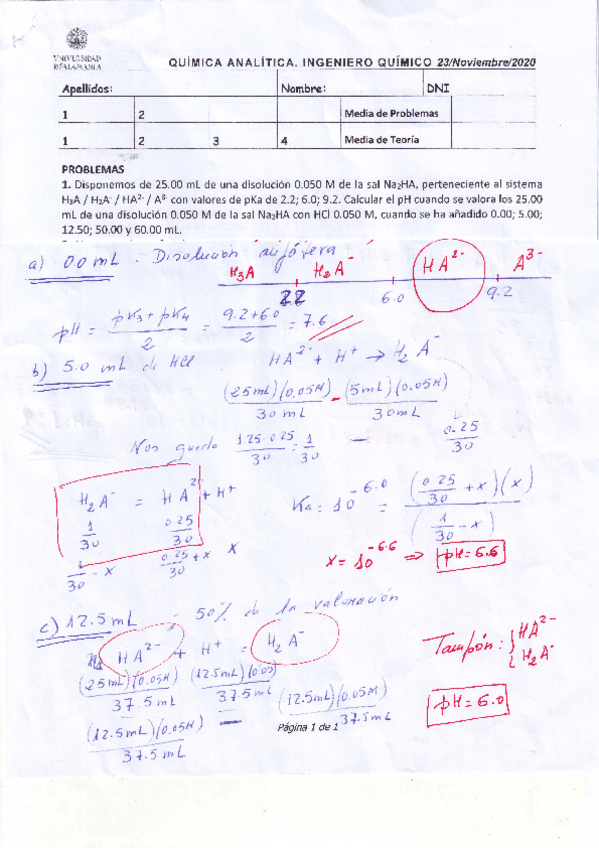 UNIVERSIDAD
D SALAMANCA
QUÍMICA ANALÍTICA. INGENIERO QUÍMICO 23/Noviembre/2020
Apellidos: Nombre: DNI
1 2 Media de Problemas
1 2 3 4 Media de Teoría
PROBLEMAS
1. Disponemos de 25.00 mL de una disolución 0.050 M de la sal Na₂HA, perteneciente al sistema
H₃A / H₂A⁻ / HA²⁻ / A³⁻ con valores de pKa de 2.2; 6.0; 9.2. Calcular el pH cuando se valora los 25.00
mL de una disolución 0.050 M de la sal Na₂HA con HCl 0.050 M, cuando se ha añadido 0.00; 5.00;
12.50; 50.00 y 60.00 mL.
a) 00 mL . Disolución anfótera
H₃A H₂A⁻ HA²⁻ A³⁻
2.2 6.0 9.2
pH = (pK₃ + pK₄)/2 = (9.2+6.0)/2 = 7.6
b) 5.0 mL de HCl HA²⁻ + H⁺ → H₂A⁻
(25mL)(0.05M)/30 mL - (5mL)(0.05M)/30mL
Nos queda (1.25-0.25)/30 = 1/30 — 0.25/30
H₂A⁻ = HA²⁻ + H⁺
1/30 0.25/30
1/30 - x 0.25/30 + x x
Ka = 10^-6.0 = (0.25/30 + x)(x)/(1/30 - x)
x = 10^-6.6 ⇒ pH = 6.6
c) 12.5 mL ; 50% de la valoración
HA²⁻ + H⁺ = H₂A⁻
(25mL)(0.05M)/37.5mL (12.5mL)(0.05)/37.5mL
(12.5mL)(0.05M)/37.5mL — (12.5mL)(0.05M)/37.5mL
Tampón: { HA²⁻ H₂A⁻
pH = 6.0
Página 1 de 1